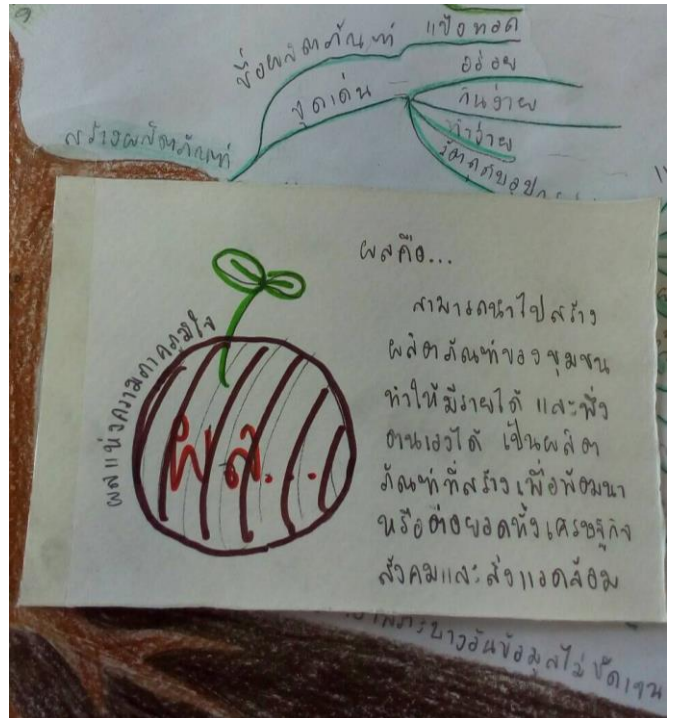 ชื่อผลิตภัณฑ์
แป้งทอด
จุดเด่น
อร่อย
กินง่าย
ทำง่าย
สร้างผลิตภัณฑ์
ผลคือ...
สามารถนำไปสร้าง
ผลิตภัณฑ์ของชุมชน
ทำให้มีรายได้ และพึ่ง
ตนเองได้ เป็นผลิต
ภัณฑ์ที่สร้างเพื่อพัฒนา
หรือต่อยอดทั้งเศรษฐกิจ
สังคมและสิ่งแวดล้อม
ผลแห่งความภาคภูมิใจ
ผล...
บางอันข้อมูลไม่ชัดเจน